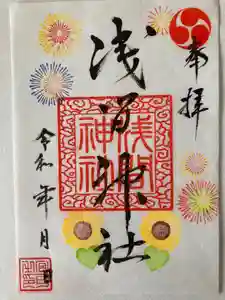 奉拝
浅間神社
浅間
神社
令和 年 月 日